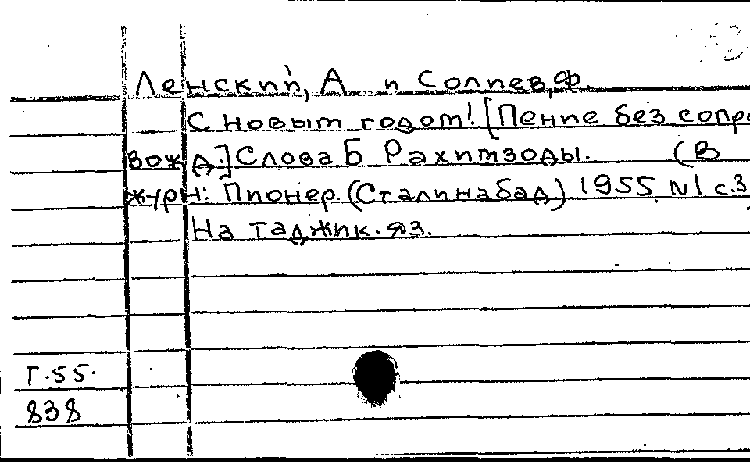 Ленский, А и Солиев, Ф.
С новым годом! [Пение без сопро
вожд.] Слова Б Рахимзоды. (В
журн: Пионер (Сталинабад) 1955 №1 с.3
На таджик. яз.
Т.55.
838